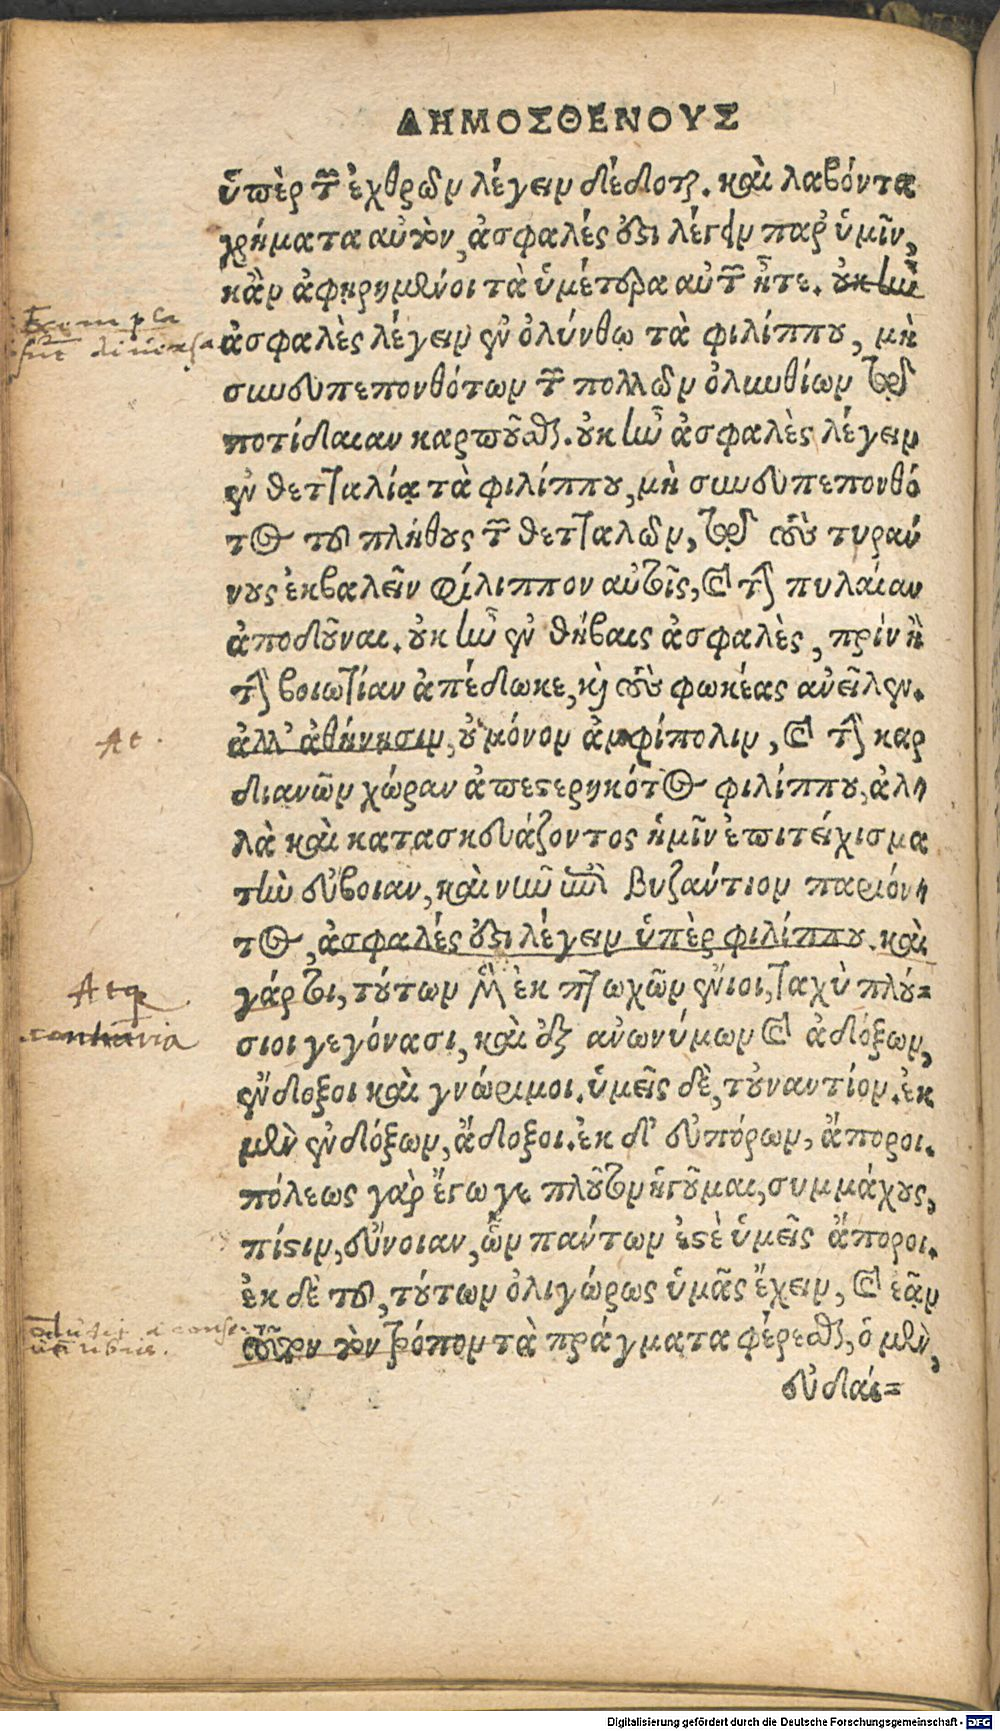 ΔΗΜΟΣΘΕΝΟΥΣ
ὑπὲρ τῶν ἐχθρῶν λέγειν δέδοται. καὶ λαβόντα
χρήματα αὐτὸν, ἀσφαλές ὅξι λέγειν παρ' ὑμῖν,
κἂν ἀφῃρημένοι τὰ ὑμέτερα αὐτῶν ἦτε. οὐκ ἦν
Exempla
sūt diuersa
ἀσφαλὲς λέγειν ἐν ὀλύνθῳ τὰ φιλίππου, μὴ
συνευπεπονθότων τῶν πολλῶν ὀλυνθίων τῷ
ποτίδαιαν καρποῦσθαι. οὐκ ἦν ἀσφαλὲς λέγειν
ἐν θετταλίᾳ τὰ φιλίππου, μὴ συνευπεπονθό
τος τοῦ πλήθους τῶν θετταλῶν, τῷ τοὺς τυράν
νους ἐκβαλεῖν φίλιππον αὐτοῖς, καὶ τὴν πυλαίαν
ἀποδοῦναι. οὐκ ἦν ἐν θήβαις ἀσφαλὲς, πρίν ἢ
τὴν βοιωτίαν ἀπέδωκε, καὶ τοὺς φωκέας ἀνεῖλεν.
At.
ἀλλ' ἀθήνησιν, οὐ μόνον ἀμφίπολιν, καὶ τὴν καρ
διανῶν χώραν ἀπεστερηκότος φιλίππου, ἀλ-
λὰ καὶ κατασκευάζοντος ἡμῖν ἐπιτείχισμα
τὴν εὔβοιαν, καὶ νῦν ἐπὶ βυζάντιον παριόν-
τος, ἀσφαλές ἐστι λέγειν ὑπὲρ φιλίππου. καὶ
Atq;
contraria
γάρ τοι, τούτων μὲν ἐκ πτωχῶν ἔνιοι, ταχὺ πλού=
σιοι γεγόνασι, καὶ ἐξ ἀνωνύμων καὶ ἀδόξων,
ἔνδοξοι καὶ γνώριμοι. ὑμεῖς δὲ, τοὐναντίον. ἐκ
μὲν ἐνδόξων, ἄδοξοι. ἐκ δ' εὐπόρων, ἄποροι.
πόλεως γὰρ ἔγωγε πλοῦτον ἡγοῦμαι, συμμάχους,
πίστιν, εὔνοιαν, ὧν πάντων ἐστὲ ὑμεῖς ἄποροι.
ἐκ δὲ τοῦ, τούτων ὀλιγώρως ὑμᾶς ἔχειν, καὶ ἐᾶν
τοῦτον τὸν τρόπον τὰ πράγματα φέρεσθαι, ὁ μὲν,
εὐδαί=
Digitalisierung gefördert durch die Deutsche Forschungsgemeinschaft - DFG